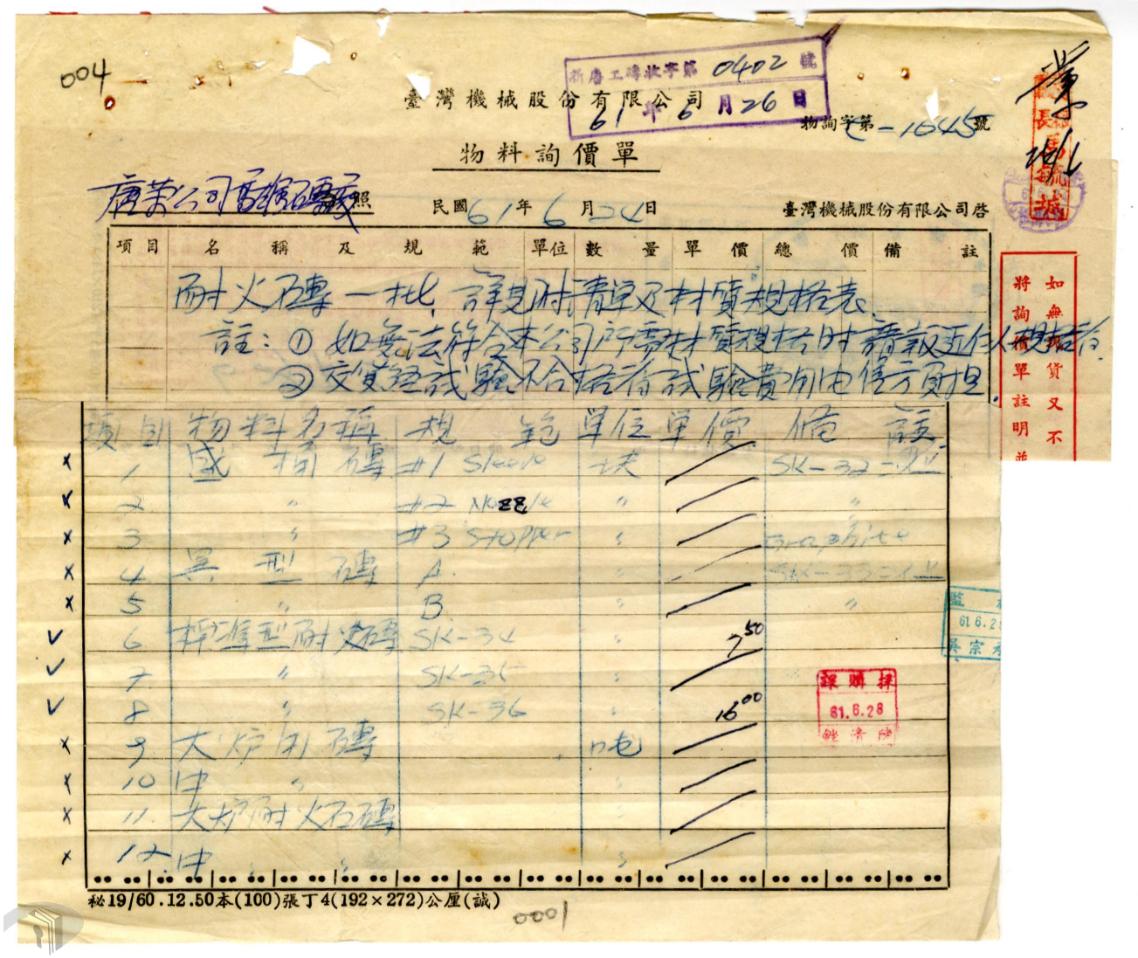 004
新唐工磚收字第0402號
61年6月26日
臺灣機械股份有限公司
物詢字第 -1645號
物料詢價單
唐榮公司高雄磚廠 照
民國61年6月24日
臺灣機械股份有限公司啓
項目 名稱及規範 單位 數量 單價 總價 備註
耐火磚一批,詳見附清單及材質規格表.
註:① 如無法符合本公司所需材質規格時請報近似規格者.
② 交貨經試驗不合格者試驗費用由售方負担.
如無 貨又不
將詢 單註明並
項目 物料名稱 規範 單位 單價 備註
x 1 磚 #1 Sleeve 块 SK-32
x 2 〃 #2 Nozzle 〃 〃
x 3 #3 Stopper 〃 Graphite
x 4 異型磚 A. 〃 SK-33
x 5 〃 B 〃 〃
✓ 6 標準型耐火磚 SK-34 〃 7.50
✓ 7 〃 SK-35 〃
✓ 8 〃 SK-36 〃 16.00
x 9 大炉用磚 吨
x 10 中 〃 〃
x 11. 大炉耐火石磚
x 12. 中 〃 〃 〃
監
61.6.28
吳宗
課購採
61.6.28
秘19/60.12.50本(100)張丁4(192×272)公厘(誠)
0001